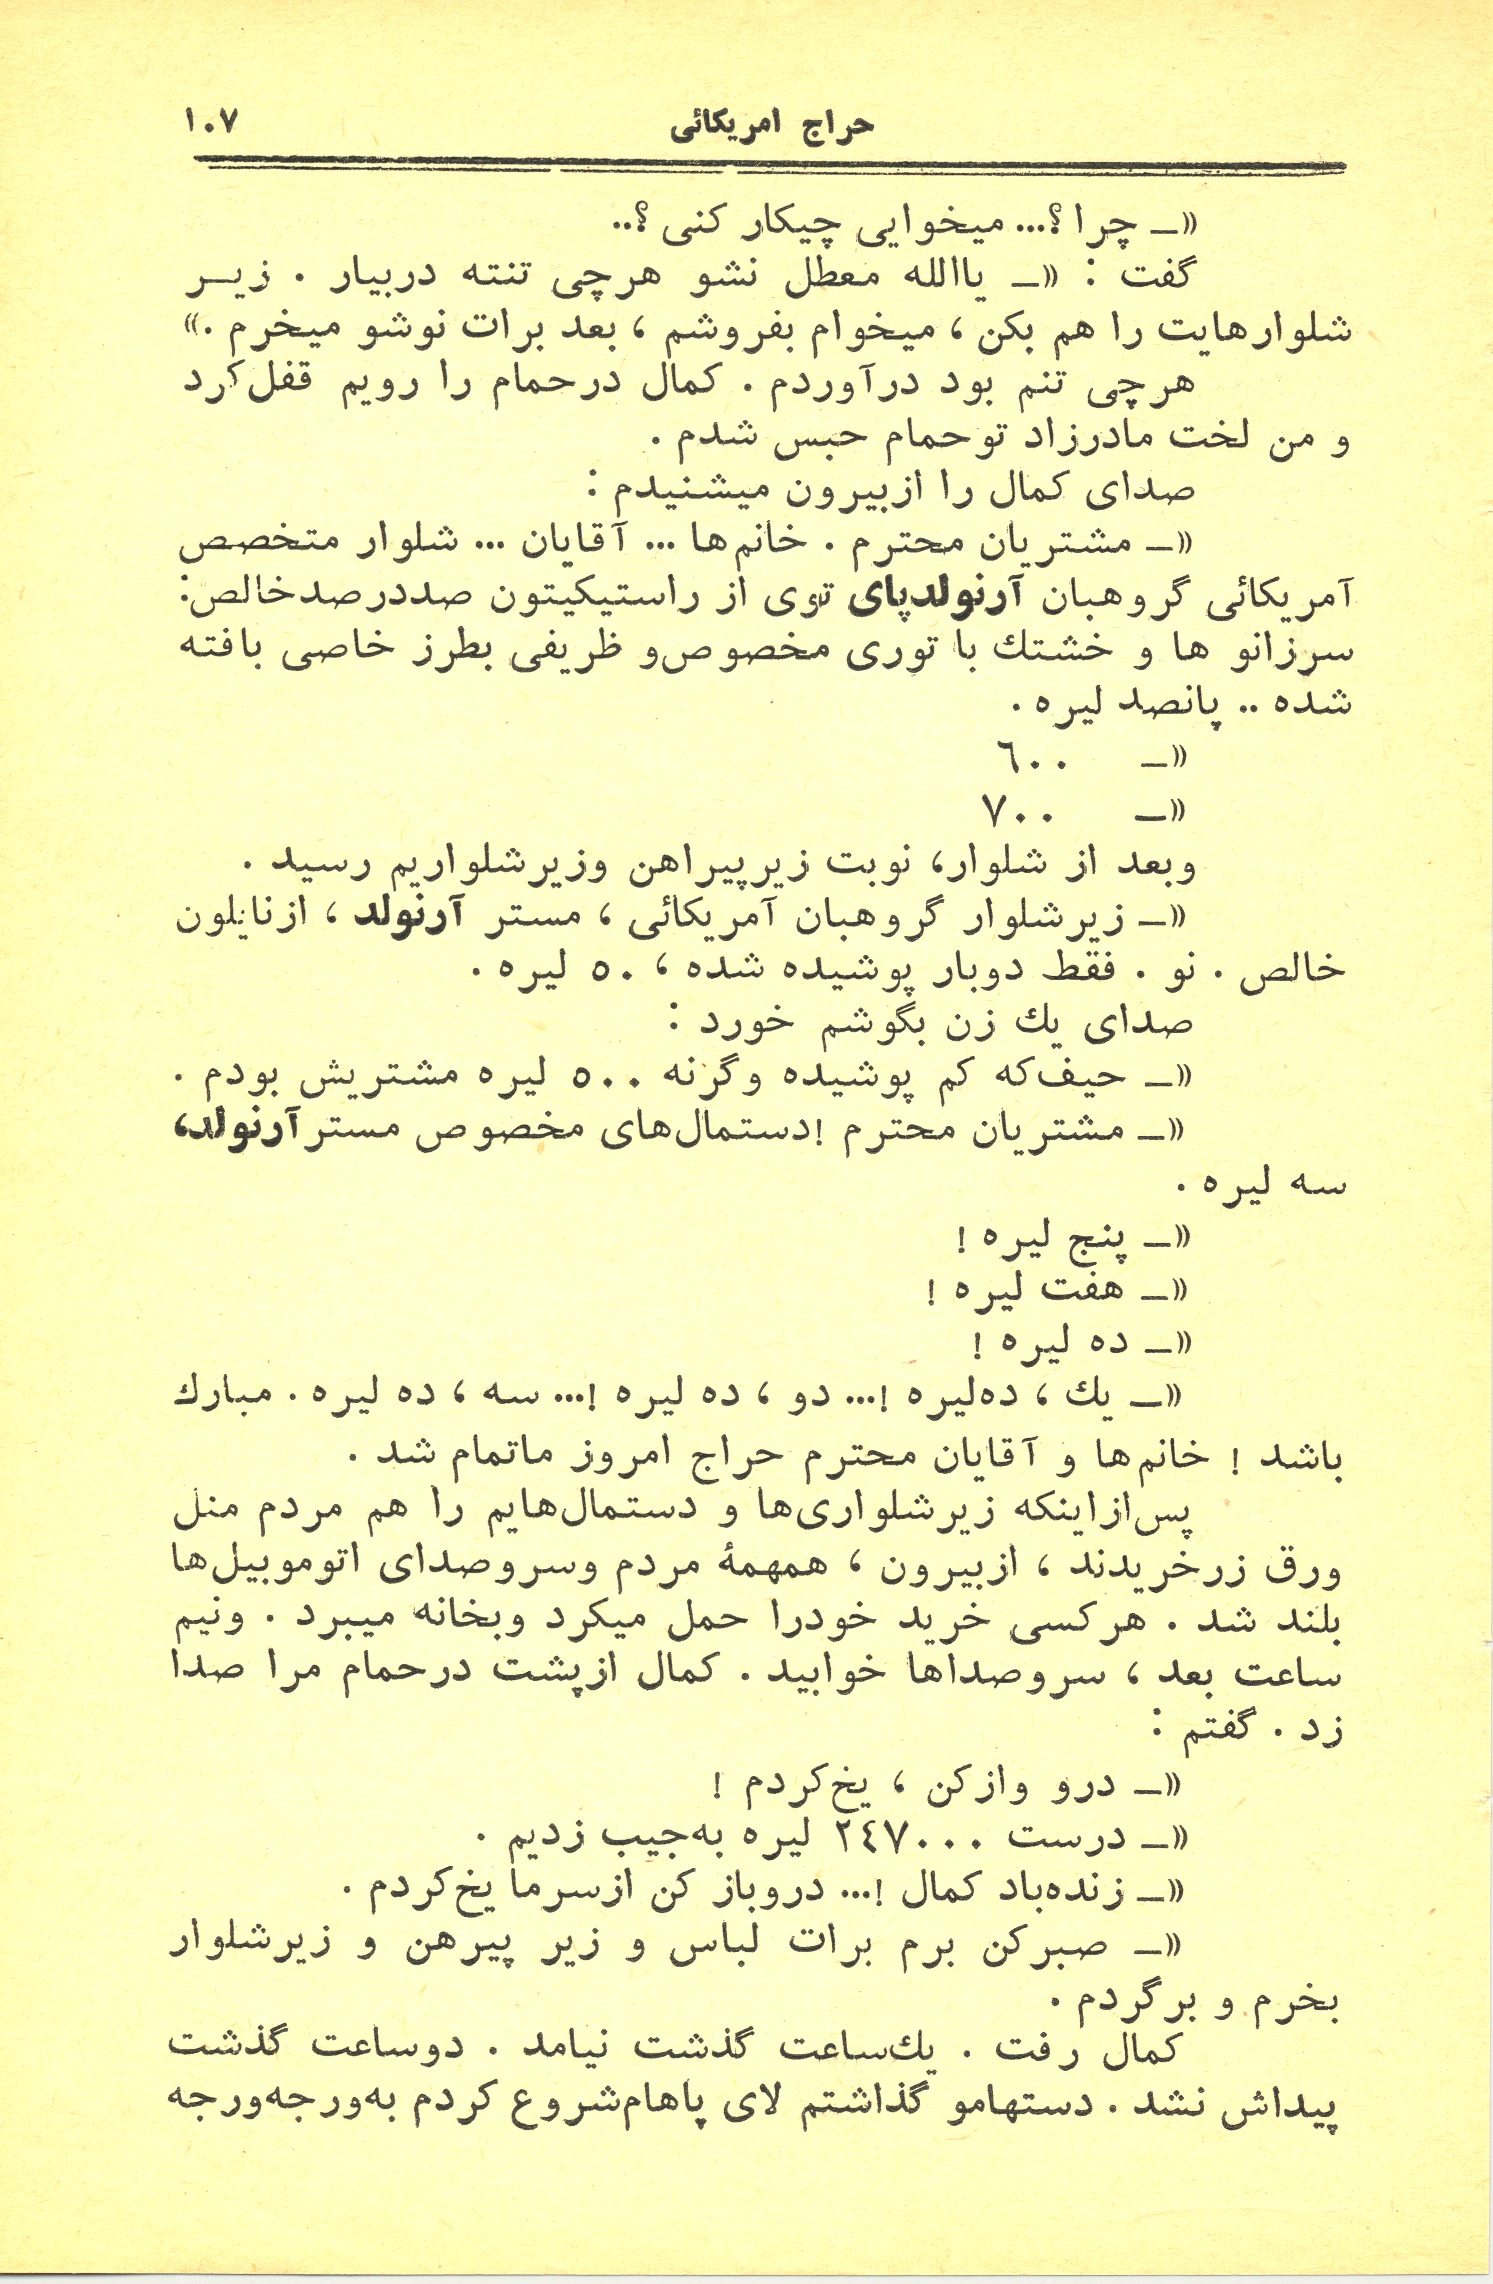 حراج امریکائی
۱۰۷
«ـ چرا ؟... میخوایی چیکار کنی ؟..
گفت : «ـ یاالله معطل نشو هرچی تنته دربیار . زیـر
شلوارهایت را هم بکن ، میخوام بفروشم ، بعد برات نوشو میخرم .»
هرچی تنم بود درآوردم . کمال درحمام را رویم قفل کرد
و من لخت مادرزاد توحمام حبس شدم .
صدای کمال را ازبیرون میشنیدم :
«ـ مشتریان محترم . خانم‌ها ... آقایان ... شلوار متخصص
آمریکائی گروهبان آرنولدپای توی از راستیکیتون صددرصدخالص:
سرزانو ها و خشتك با توری مخصوص‌و ظریفی بطرز خاصی بافته
شده .. پانصد لیره .
«ـ ٦٠٠
«ـ ٧٠٠
وبعد از شلوار، نوبت زیرپیراهن وزیرشلواریم رسید .
«ـ زیرشلوار گروهبان آمریکائی ، مستر آرنولد ، ازنایلون
خالص . نو . فقط دوبار پوشیده شده ، ٥٠ لیره .
صدای یك زن بگوشم خورد :
«ـ حیف‌که کم پوشیده وگرنه ٥٠٠ لیره مشتریش بودم .
«ـ مشتریان محترم !دستمال‌های مخصوص مسترآرنولد،
سه لیره .
«ـ پنج لیره !
«ـ هفت لیره !
«ـ ده لیره !
«ـ یك ، ده‌لیره !... دو ، ده لیره !... سه ، ده لیره . مبارك
باشد ! خانم‌ها و آقایان محترم حراج امروز ماتمام شد .
پس‌ازاینکه زیرشلواری‌ها و دستمال‌هایم را هم مردم منل
ورق زرخریدند ، ازبیرون ، همهمهٔ مردم وسروصدای اتوموبیل‌ها
بلند شد . هرکسی خرید خودرا حمل میکرد وبخانه میبرد . ونیم
ساعت بعد ، سروصداها خوابید . کمال ازپشت درحمام مرا صدا
زد . گفتم :
«ـ درو وازکن ، یخ‌کردم !
«ـ درست ٢٤٧٠٠٠ لیره به‌جیب زدیم .
«ـ زنده‌باد کمال !... دروباز کن ازسرما یخ‌کردم .
«ـ صبرکن برم برات لباس و زیر پیرهن و زیرشلوار
بخرم و برگردم .
کمال رفت . یك‌ساعت گذشت نیامد . دوساعت گذشت
پیداش نشد . دستهامو گذاشتم لای پاهام‌شروع کردم به‌ورجه‌ورجه